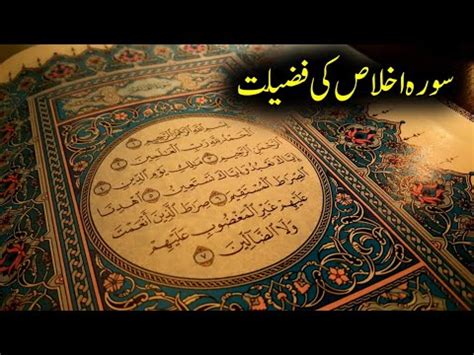 سورہ اخلاص کی فضیلت
بِسْمِ اللَّهِ الرَّحْمَٰنِ الرَّحِيمِ ١
الْحَمْدُ لِلَّهِ رَبِّ الْعَالَمِينَ ٢
الرَّحْمَٰنِ الرَّحِيمِ ٣ مَالِكِ يَوْمِ الدِّينِ ٤
إِيَّاكَ نَعْبُدُ وَإِيَّاكَ نَسْتَعِينُ ٥ اهْدِنَا
الصِّرَاطَ الْمُسْتَقِيمَ ٦ صِرَاطَ الَّذِينَ أَنْعَمْتَ
عَلَيْهِمْ غَيْرِ الْمَغْضُوبِ عَلَيْهِمْ
وَلَا الضَّالِّينَ ٧